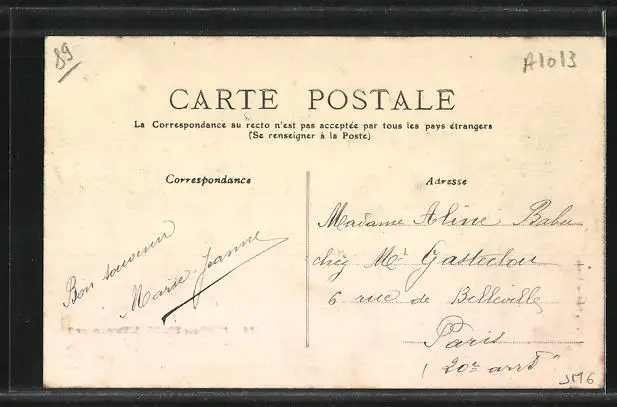 89
A1013
CARTE POSTALE
La Correspondance au recto n'est pas acceptée par tous les pays étrangers
(Se renseigner à la Poste)
Correspondance
Bon souvenir
Marie-Jeanne
Adresse
Madame Aline Babu
chez Mr Gastedou
6 rue de Belleville
Paris
(20e arrt
JM6